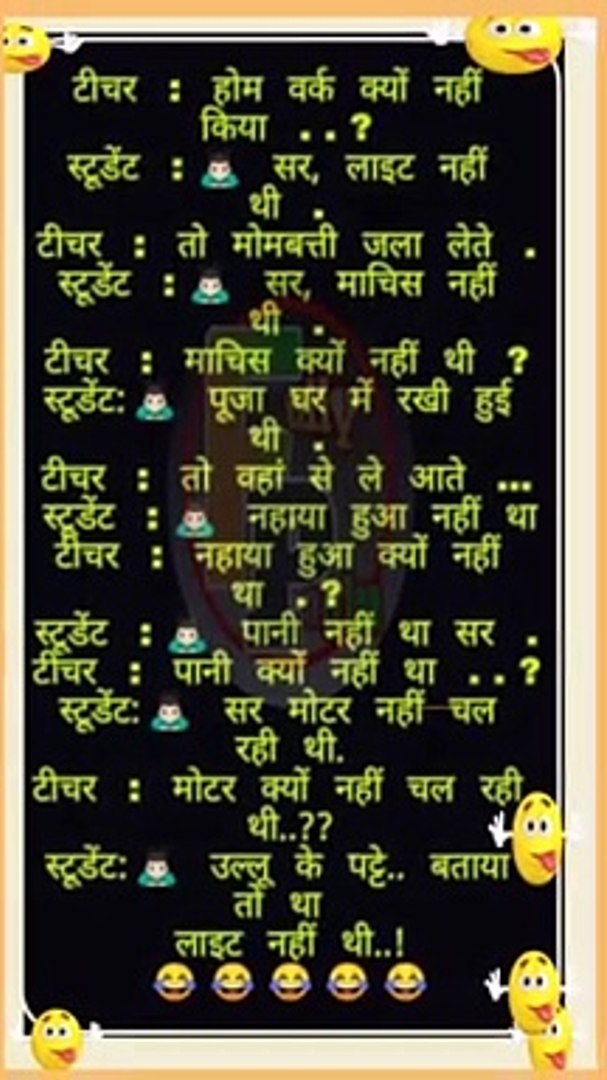 टीचर : होम वर्क क्यों नहीं
किया . . ?
स्टूडेंट : 🙇🏻‍♂️ सर, लाइट नहीं
थी .
टीचर : तो मोमबत्ती जला लेते .
स्टूडेंट : 🙇🏻‍♂️ सर, माचिस नहीं
थी .
टीचर : माचिस क्यों नहीं थी ?
स्टूडेंट: 🙇🏻‍♂️ पूजा घर में रखी हुई
थी .
टीचर : तो वहां से ले आते ...
स्टूडेंट : 🙇🏻‍♂️ नहाया हुआ नहीं था
टीचर : नहाया हुआ क्यों नहीं
था . ?
स्टूडेंट : 🙇🏻‍♂️ पानी नहीं था सर .
टीचर : पानी क्यों नहीं था . . ?
स्टूडेंट: 🙇🏻‍♂️ सर मोटर नहीं चल
रही थी.
टीचर : मोटर क्यों नहीं चल रही
थी..??
स्टूडेंट: 🙇🏻‍♂️ उल्लू के पट्टे.. बताया
तो था
लाइट नहीं थी..!
😂 😂 😂 😂 😂